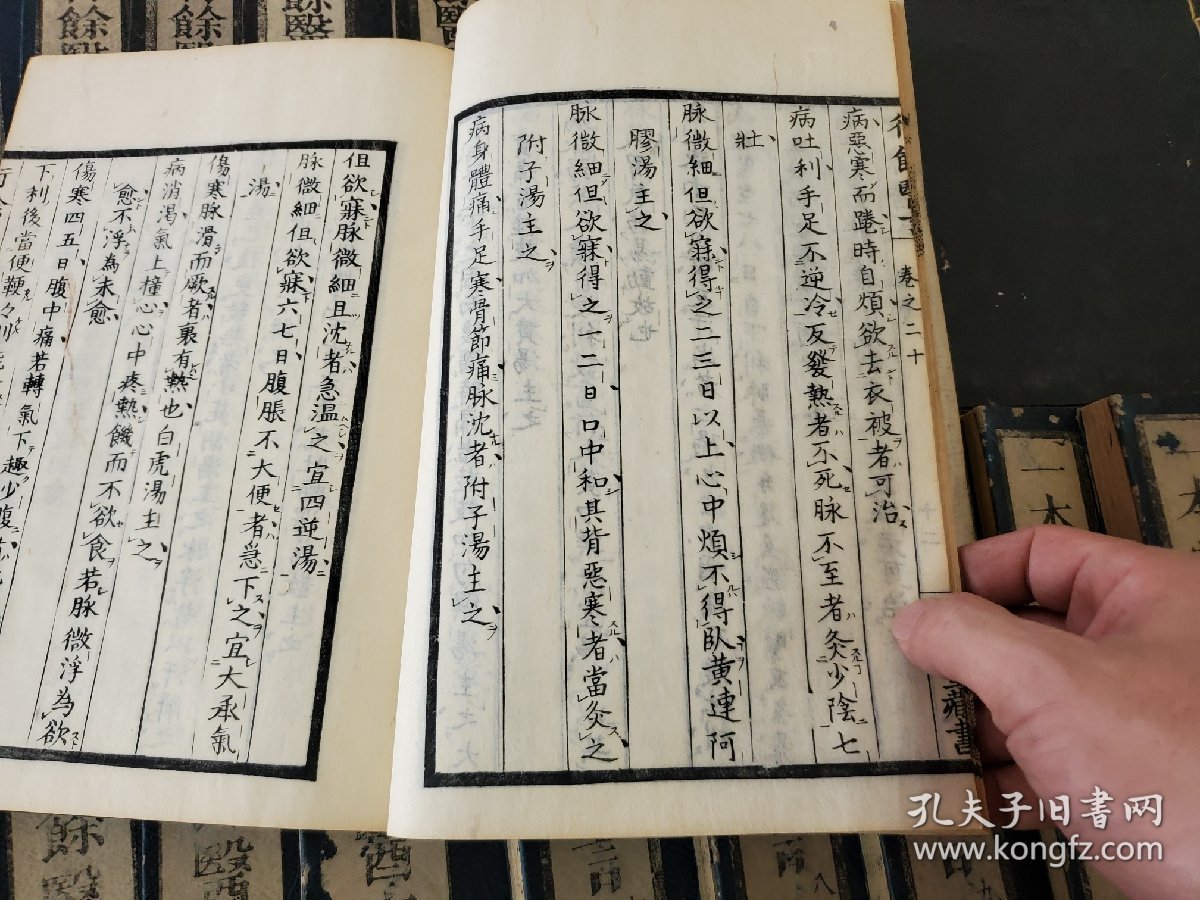 行餘醫言 卷之二十
病惡寒而踡時自煩欲去衣被者可治
病吐利手足不逆冷反發熱者不死脉不至者灸少陰七
壯
脉微細但欲寐得之二三日以上心中煩不得臥黄連阿
膠湯主之
脉微細但欲寐得之一二日口中和其背惡寒者當灸之
附子湯主之
病身體痛手足寒骨節痛脉沈者附子湯主之
但欲寐脉微細且沈者急温之宜四逆湯
脉微細但欲寐六七日腹脹不大便者急下之宜大承氣
湯
傷寒脉滑而厥者裏有熱也白虎湯主之
病消渴氣上撞心心中疼熱饑而不欲食若脉微浮為欲
愈不浮為未愈
傷寒四五日腹中痛若轉氣下趣少腹
下利後當便鞕
十二
藏書
餘醫
餘醫
餘醫
一本
一本
餘醫
孔夫子旧书网
www.kongfz.com